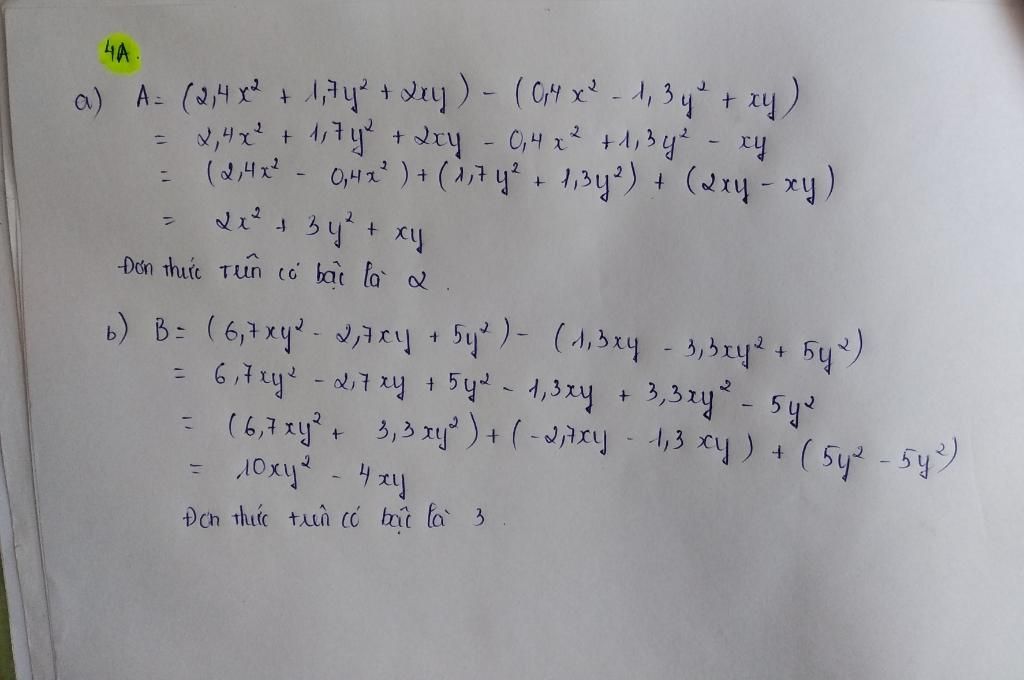 4A.
a) A = (2,4x² + 1,7y² + 2xy) - (0,4x² - 1,3y² + xy)
= 2,4x² + 1,7y² + 2xy - 0,4x² + 1,3y² - xy
= (2,4x² - 0,4x²) + (1,7y² + 1,3y²) + (2xy - xy)
= 2x² + 3y² + xy
Đơn thức trên có bậc là 2.
b) B = (6,7xy² - 2,7xy + 5y²) - (1,3xy - 3,3xy² + 5y²)
= 6,7xy² - 2,7xy + 5y² - 1,3xy + 3,3xy² - 5y²
= (6,7xy² + 3,3xy²) + (-2,7xy - 1,3xy) + (5y² - 5y²)
= 10xy² - 4xy
Đơn thức trên có bậc là 3.